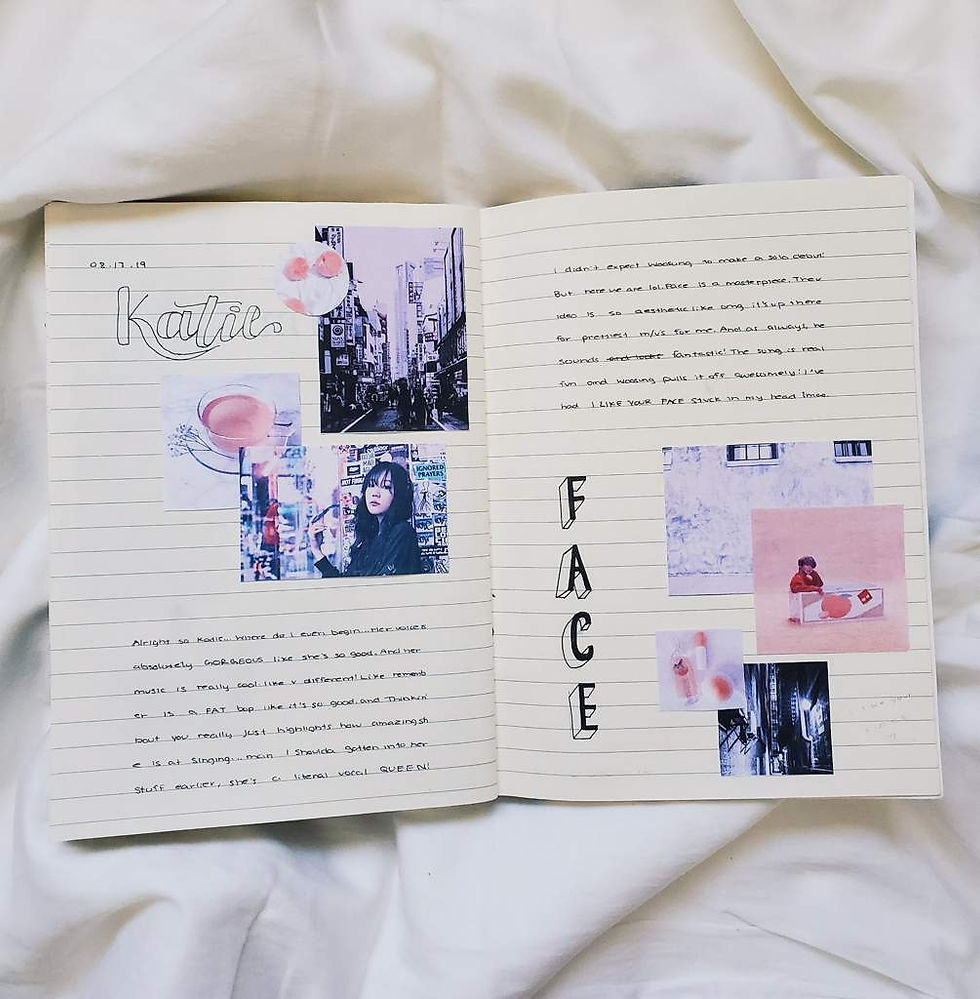 08.17.19
Katie
IGNORED
PRAYERS
Alright so Katie... where do I even begin... Her voice is
absolutely GORGEOUS like she's so good. And her
music is really cool like v different! Like rememb
er is a FAT bop like it's so good and Thinkin'
bout you really just highlights how amazing sh
e is at singing... man I shoulda gotten into her
stuff earlier, she's a literal vocal QUEEN!
I didn't expect Woosung to make a solo debut!
But here we are lol. Face is a masterpiece. The v
ideo is so aesthetic like omg it's up there
for prettiest m/vs for me. And as always, he
sounds and looks fantastic! The song is real
fun and Woosung pulls it off awesomely! I've
had I LIKE YOUR FACE stuck in my head lmao.
F
A
C
E